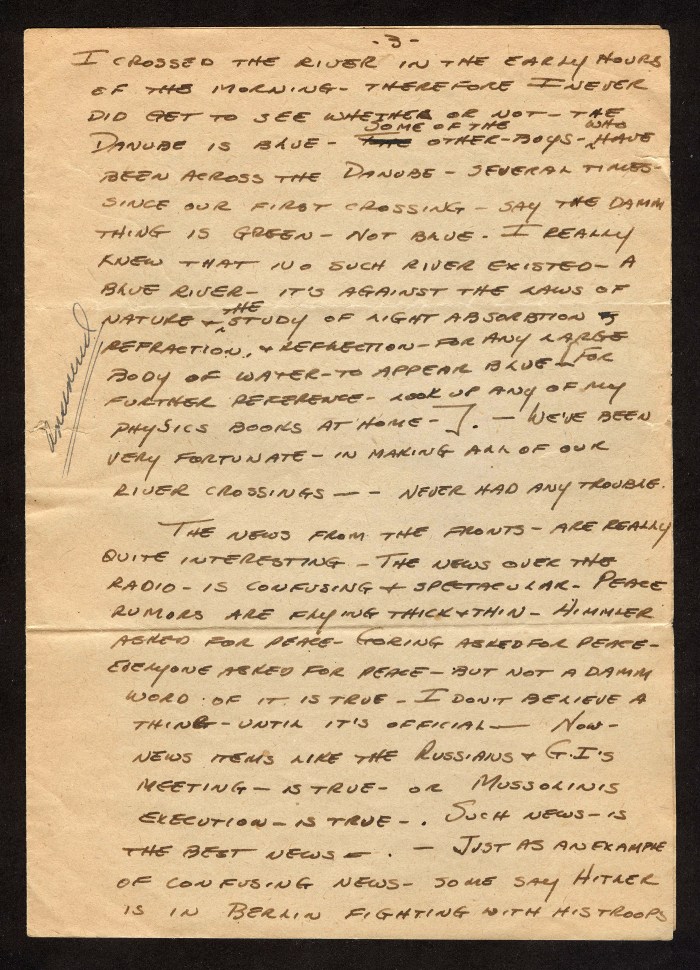 -3-
I CROSSED THE RIVER IN THE EARLY HOURS
OF THE MORNING - THEREFORE I NEVER
DID GET TO SEE WHETHER OR NOT - THE
SOME OF THE WHO
DANUBE IS BLUE - OTHER - BOYS - HAVE
BEEN ACROSS THE DANUBE - SEVERAL TIMES -
SINCE OUR FIRST CROSSING - SAY THE DAMM
THING IS GREEN - NOT BLUE. I REALLY
KNEW THAT NO SUCH RIVER EXISTED - A
BLUE RIVER - IT'S AGAINST THE LAWS OF
THE
NATURE + STUDY OF LIGHT ABSORBTION
REFRACTION, + REFLECTION - FOR ANY LARGE
BODY OF WATER - TO APPEAR BLUE - [FOR
FURTHER REFERENCE - LOOK UP ANY OF MY
PHYSICS BOOKS AT HOME - ]. - WE'VE BEEN
VERY FORTUNATE - IN MAKING ALL OF OUR
RIVER CROSSINGS - - NEVER HAD ANY TROUBLE.
Answered
THE NEWS FROM THE FRONTS - ARE REALLY
QUITE INTERESTING - THE NEWS OVER THE
RADIO - IS CONFUSING + SPECTACULAR - PEACE
RUMORS ARE FLYING THICK + THIN - HIMMLER
ASKED FOR PEACE - GORING ASKED FOR PEACE -
EVERYONE ASKED FOR PEACE - BUT NOT A DAMM
WORD OF IT IS TRUE - I DON'T BELIEVE A
THING - UNTIL IT'S OFFICIAL - NOW -
NEWS ITEMS LIKE THE RUSSIANS + G.I'S
MEETING - IS TRUE - OR MUSSOLINIS
EXECUTION - IS TRUE - . SUCH NEWS - IS
THE BEST NEWS - . - JUST AS AN EXAMPLE
OF CONFUSING NEWS - SOME SAY HITLER
IS IN BERLIN FIGHTING WITH HIS TROOPS